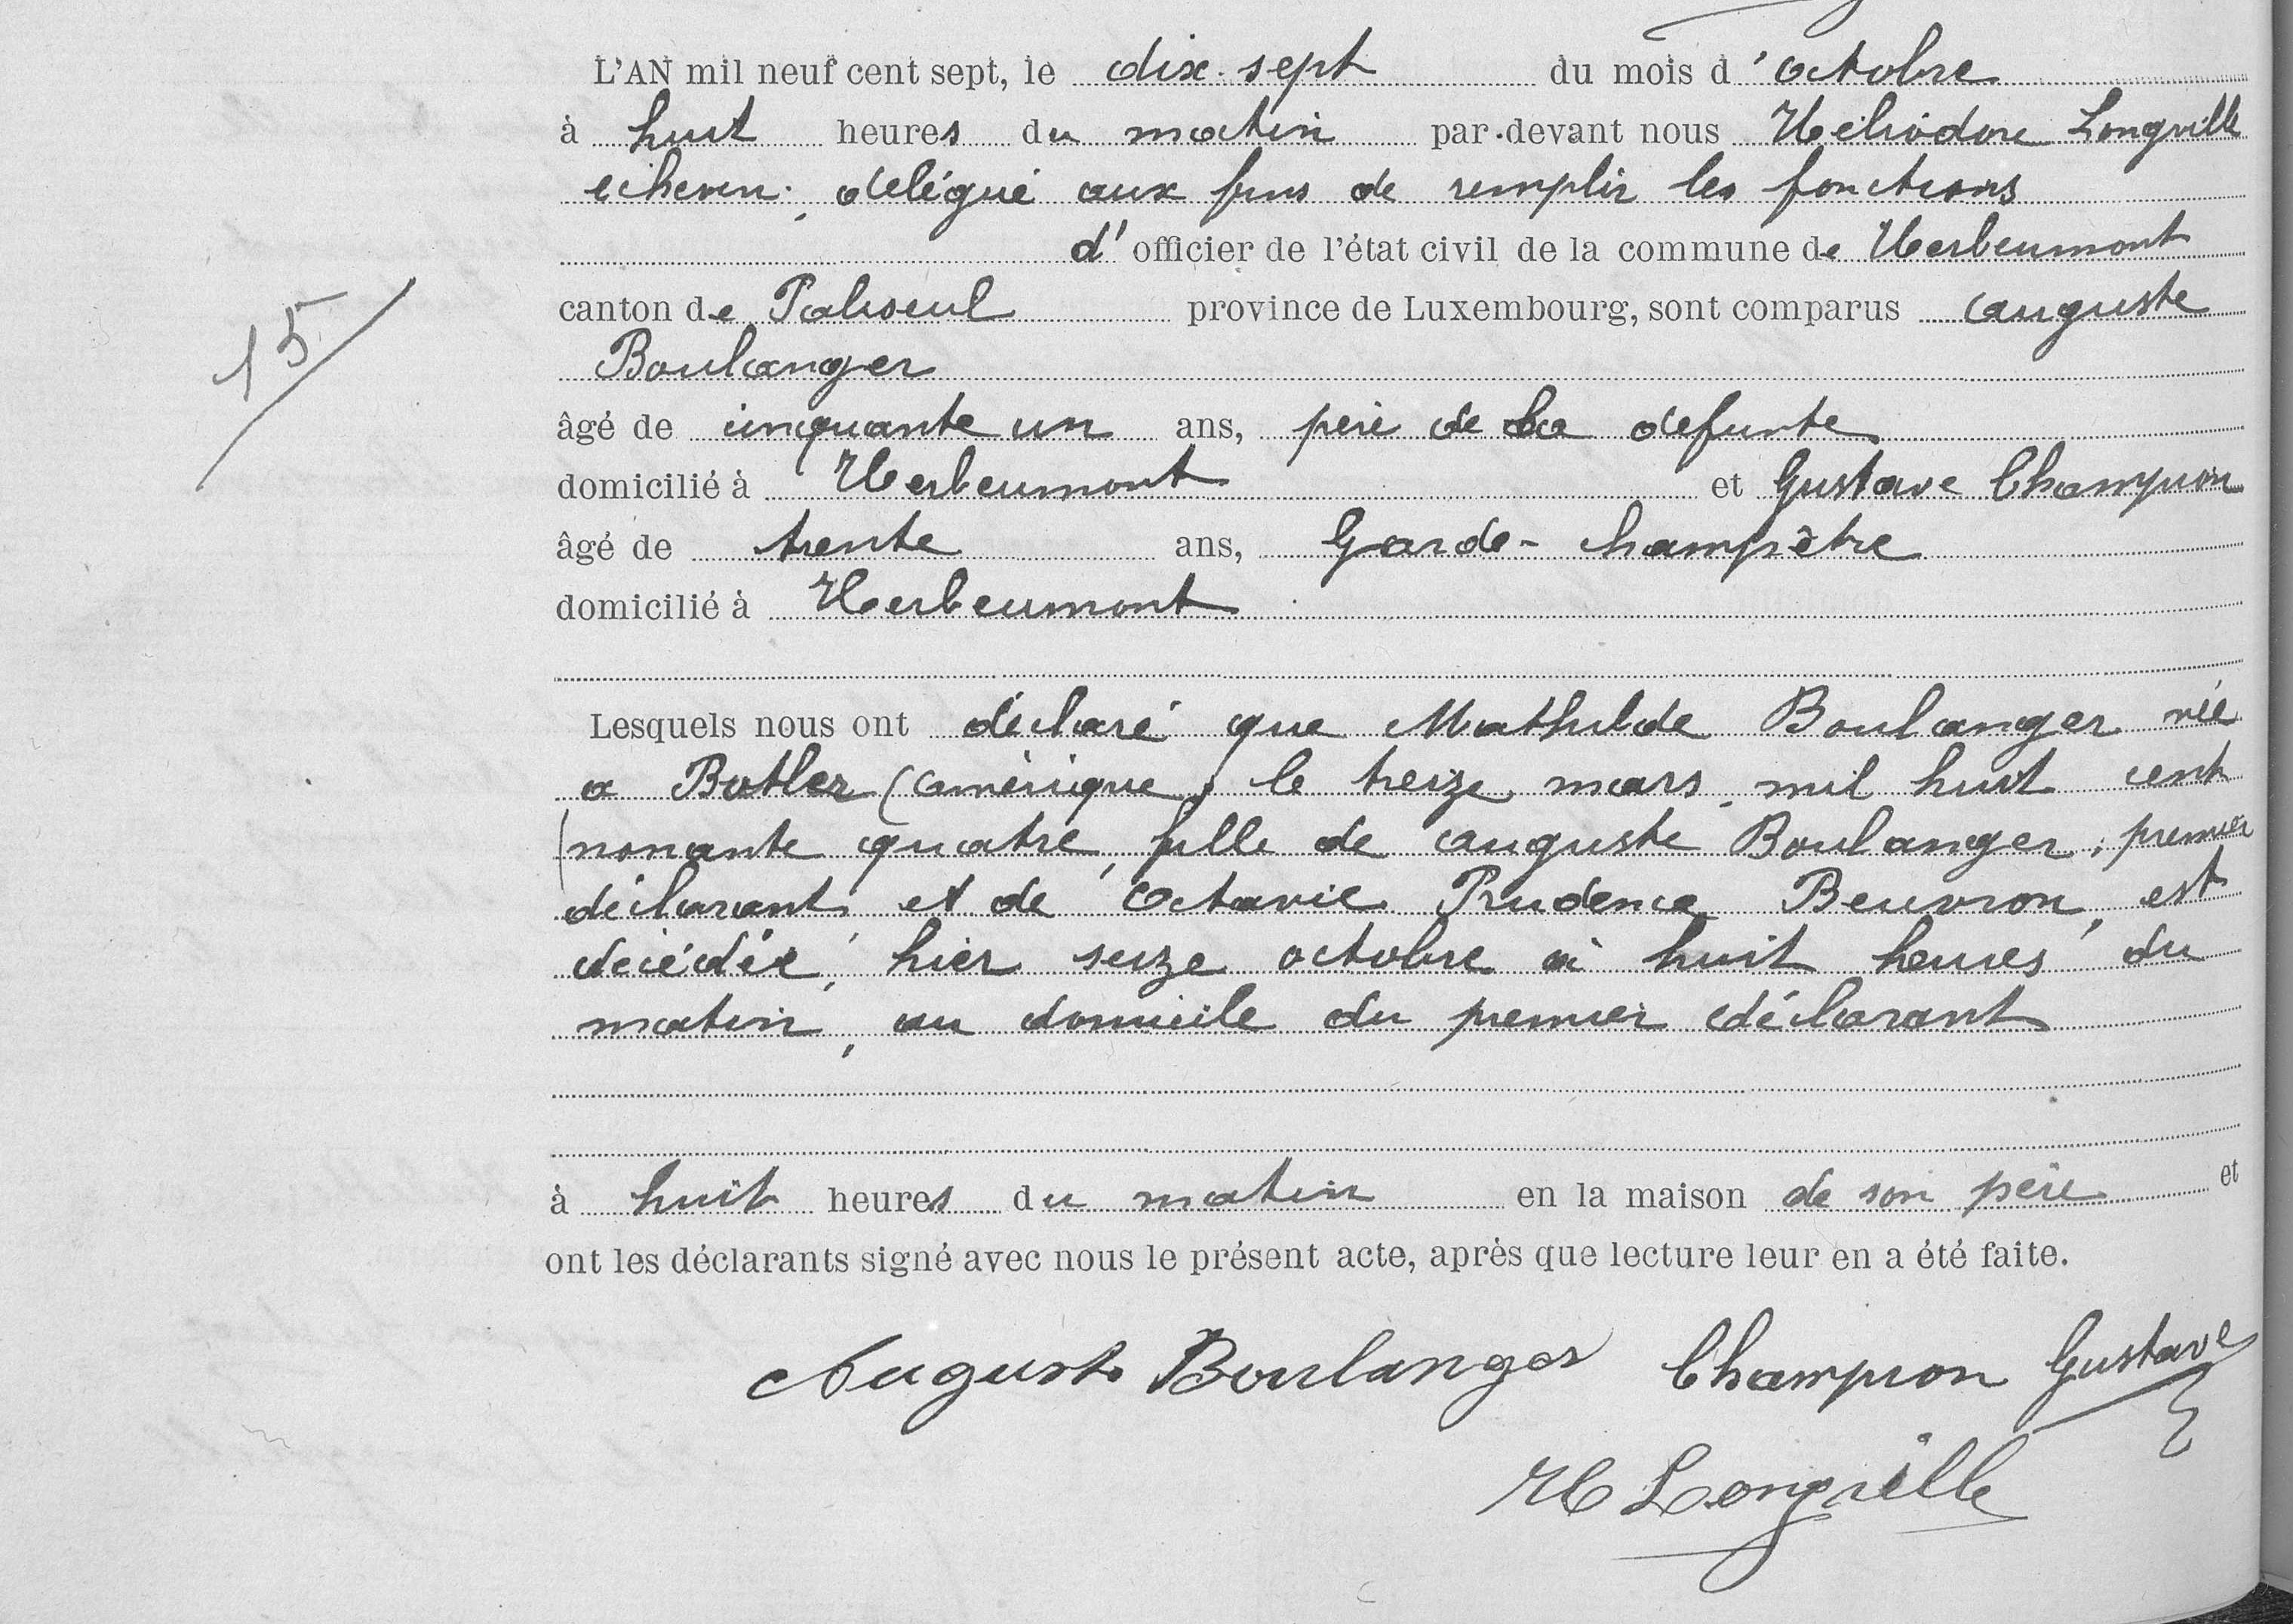 L'AN mil neuf cent sept, le dix-sept du mois d'octobre
à huit heures du matin par-devant nous Héliodore Longville
échevin, délégué aux fins de remplir les fonctions
d'officier de l'état civil de la commune de Herbeumont
canton de Paliseul province de Luxembourg, sont comparus Auguste
15
Boulanger
âgé de cinquante un ans, père de la défunte
domicilié à Herbeumont et Gustave Champion
âgé de trente ans, Garde-champêtre
domicilié à Herbeumont
Lesquels nous ont déclaré que Mathilde Boulanger née
a Butler (Amérique) le treize mars, mil huit cent
nonante quatre, fille de Auguste Boulanger, premier
déclarant et de Octavie Prudence Beuvron, est
décédée, hier seize octobre à huit heures du
matin, au domicile du premier déclarant
à huit heures du matin en la maison de son père et
ont les déclarants signé avec nous le présent acte, après que lecture leur en a été faite.
Auguste Boulanger Champion Gustave
H Longville